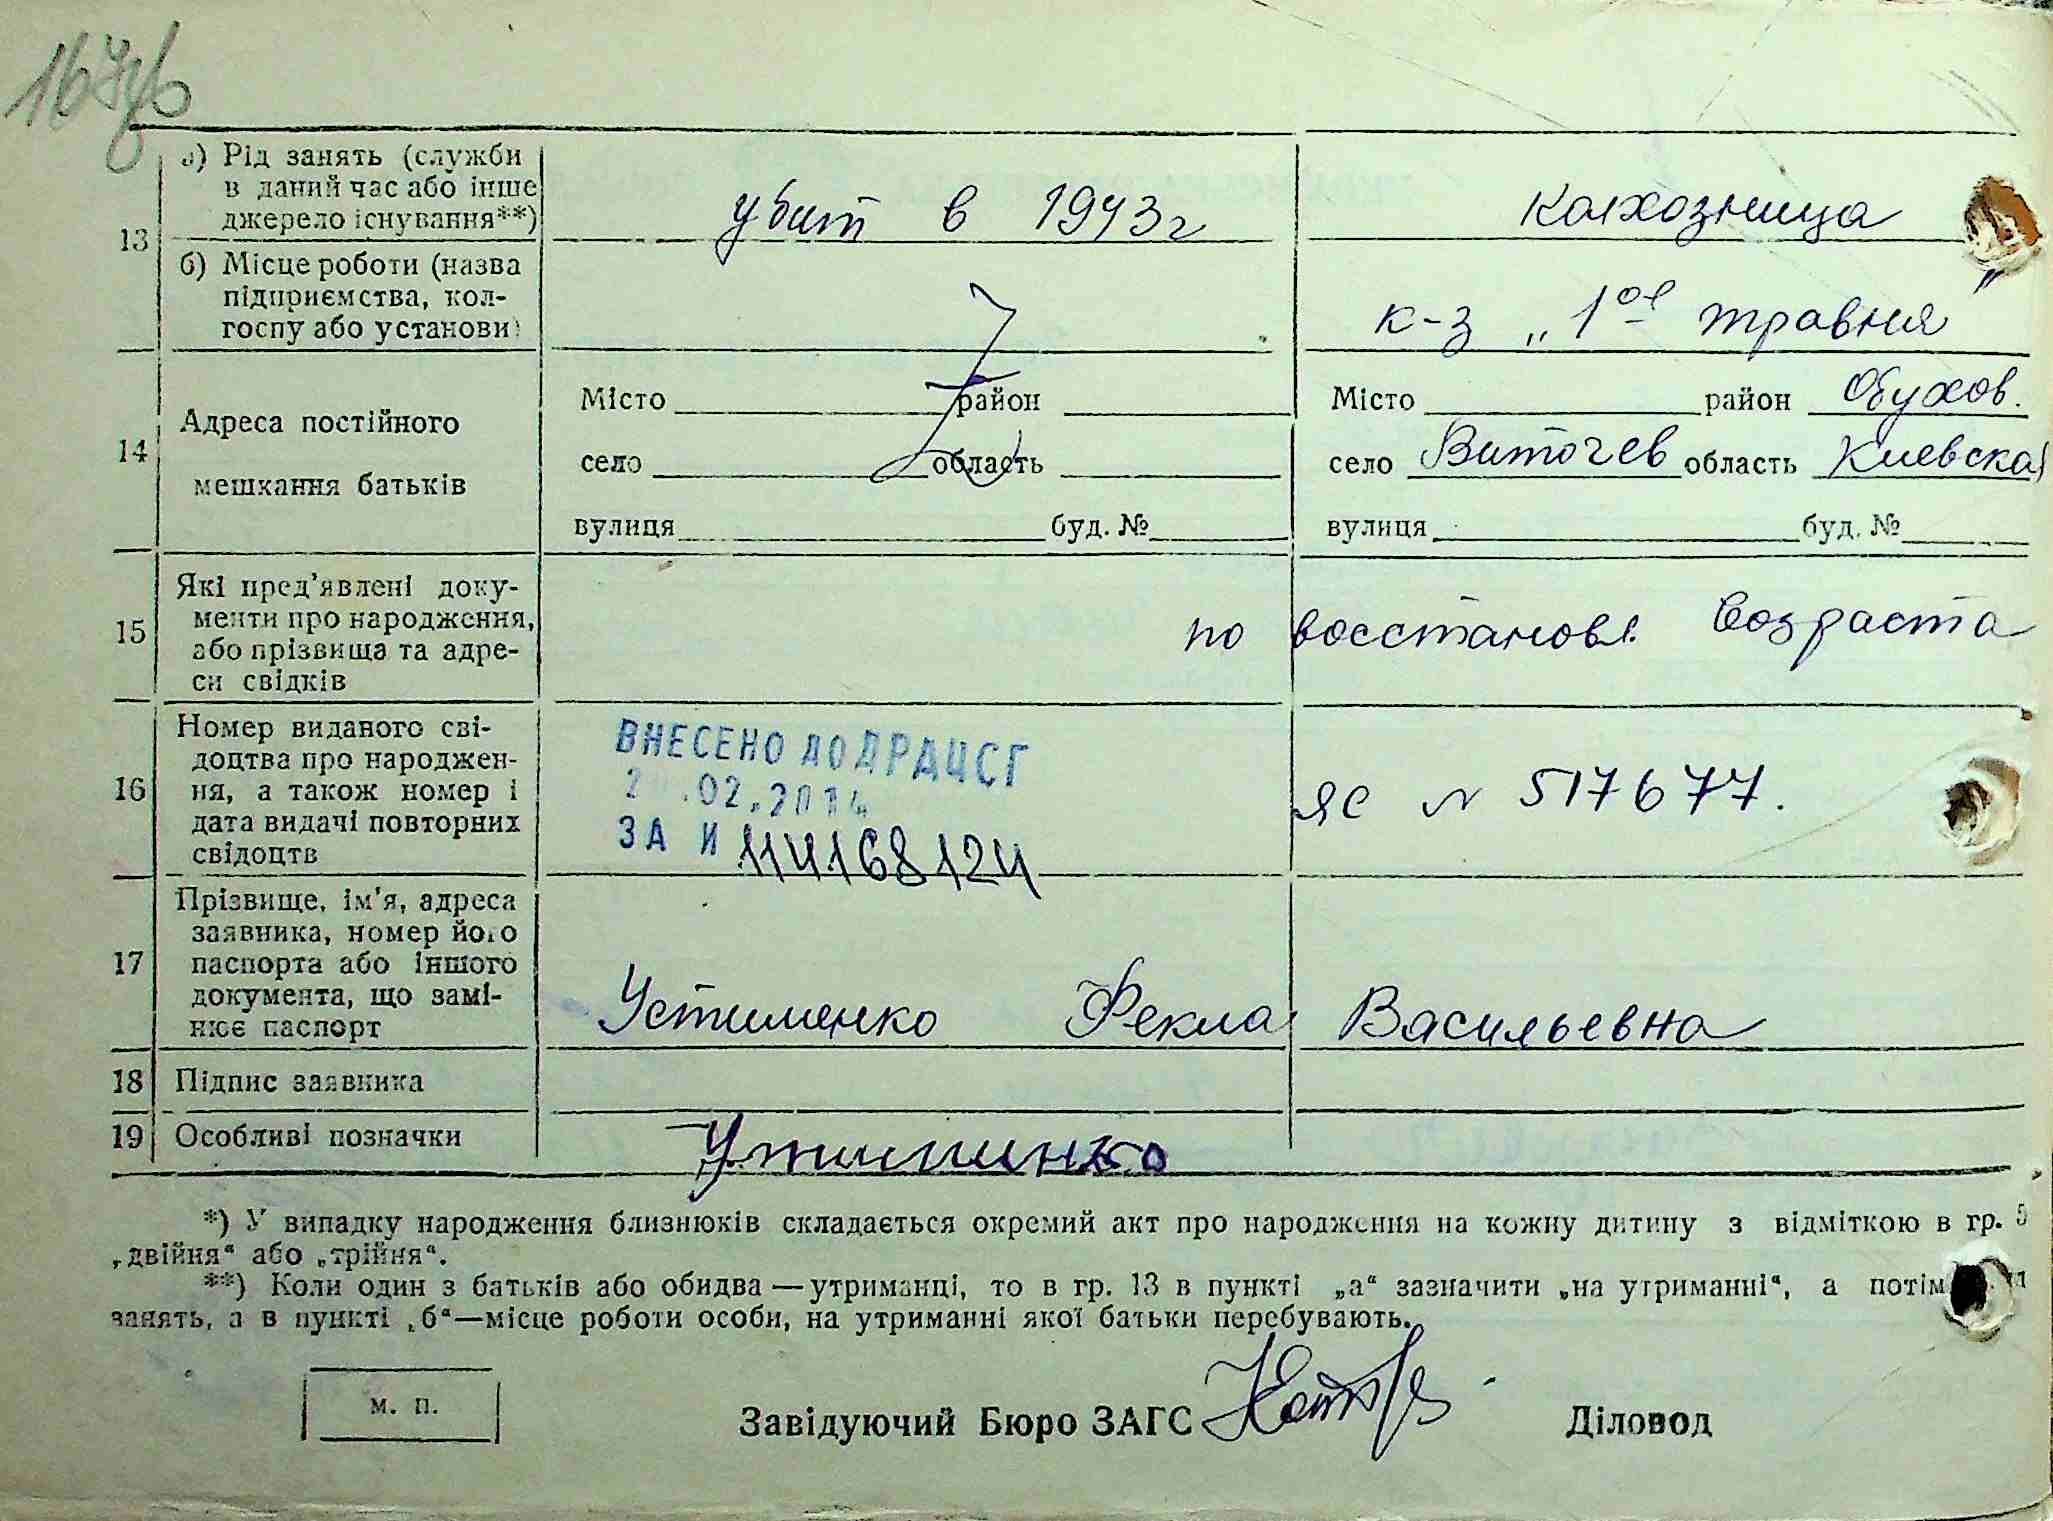 13
а) Рід занять (служби
в даний час або інше
джерело існування**)
убит в 1943г
колхозница
б) Місце роботи (назва
підприємства, кол-
госпу або установи)
к-з „1ое травня"
14
Адреса постійного
мешкання батьків
Місто район
село область
вулиця буд. №
Місто район Обухов.
село Витачев область Киевская
вулиця буд. №
15
Які пред'явлені доку-
менти про народження,
або прізвища та адре-
си свідків
по восстановл. возраста
16
Номер виданого сві-
доцтва про народжен-
ня, а також номер і
дата видачі повторних
свідоцтв
ВНЕСЕНО ДО ДРАЦСГ
.02.2014
ЗА № 114168124
ЯС N 517677.
17
Прізвище, ім'я, адреса
заявника, номер його
паспорта або іншого
документа, що замі-
нює паспорт
Устименко Фекла Васильевна
18 Підпис заявника
19 Особливі позначки
*) У випадку народження близнюків складається окремий акт про народження на кожну дитину з відміткою в гр. 5
„двійня" або „трійня".
**) Коли один з батьків або обидва — утриманці, то в гр. 13 в пункті „а" зазначити „на утриманні", а потім
занять, а в пункті „б"—місце роботи особи, на утриманні якої батьки перебувають.
м. п.
Завідуючий Бюро ЗАГС
Діловод